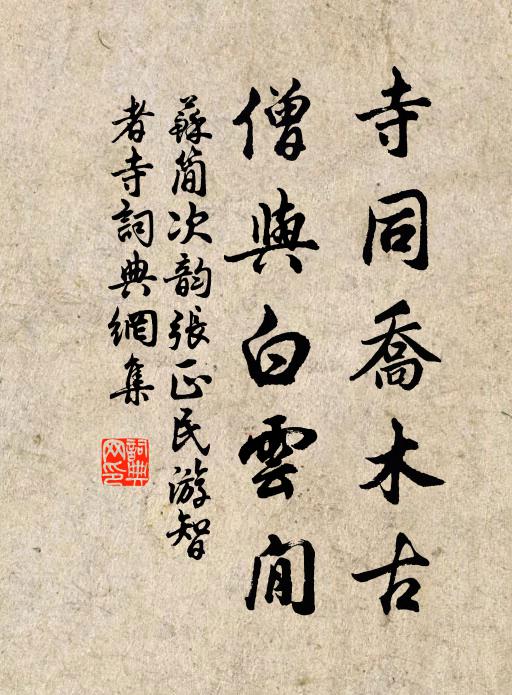 寺同喬木古
僧與白雲閒
蘇簡次韵張正民游智
者寺詞典網集
詞典网印